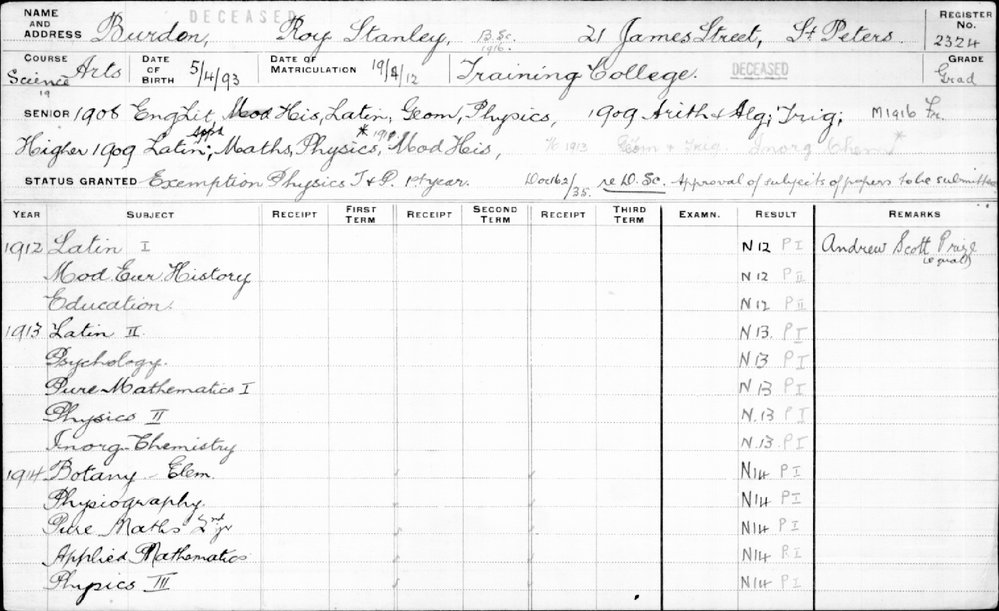 DECEASED
NAME AND ADDRESS Burdon, Roy Stanley, B.Sc. 1916. 21 James Street, St Peters REGISTER NO. 2324
COURSE Science Arts DATE OF BIRTH 5/4/93 DATE OF MATRICULATION 19/4/12 Training College. DECEASED GRADE Grad
SENIOR 1908 Eng Lit, Mod His, Latin, Geom, Physics, 1909 Arith & Alg; Trig; M1916 Fr.
Higher 1909 Latin; Maths, Physics, * 1910 Mod His, 1913 Geom & Trig. Inorg Chem *
STATUS GRANTED Exemption Physics T & P. 1st year. Doc 162/35. re D. Sc. Approval of subjects of papers to be submitted
YEAR SUBJECT RECEIPT FIRST TERM RECEIPT SECOND TERM RECEIPT THIRD TERM EXAMN. RESULT REMARKS
1912 Latin I N12 P I Andrew Scott Prize
(equal)
Mod Eur History N12 P II
Education. N12 P II
1913 Latin II. N13. P I
Psychology. N13 P I
Pure Mathematics I N13 P I
Physics II N.13 P I
Inorg. Chemistry N.13 P I
1914 Botany - Elem. N14 P I
Physiography. N14 P I
Pure Maths 2nd yr N14 P I
Applied Mathematics N14 P I
Physics III N14 P I